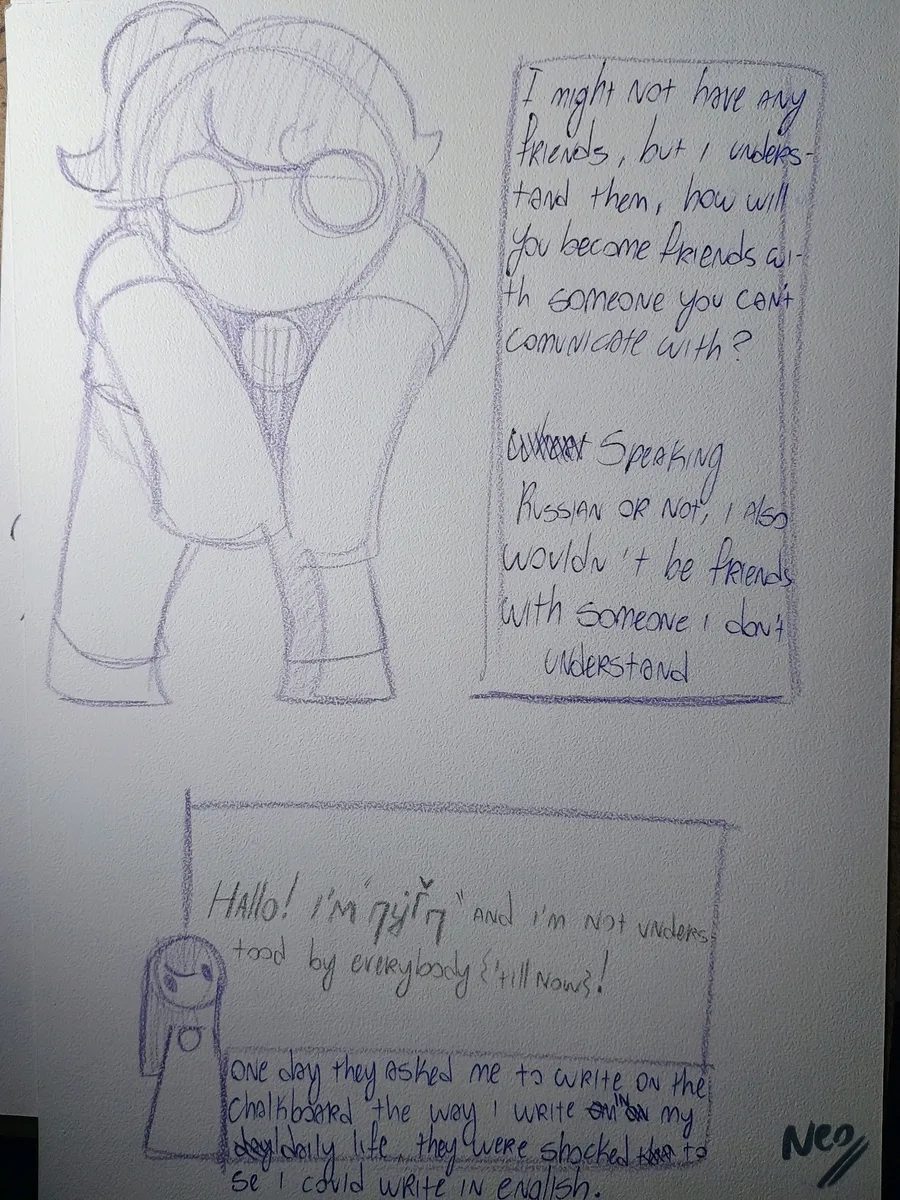 I might not have any
friends, but i unders-
tand them, how will
you become friends wi-
th someone you can't
comunicate with?
Speaking
Russian or not, i also
wouldn't be friends
with someone i don't
understand
Hallo! i'm " " and i'm not unders-
tood by everybody {'till now}!
One day they asked me to write on the
chalkboard the way i write in my
daily life, they were shocked to
se i could write in english.
Neo